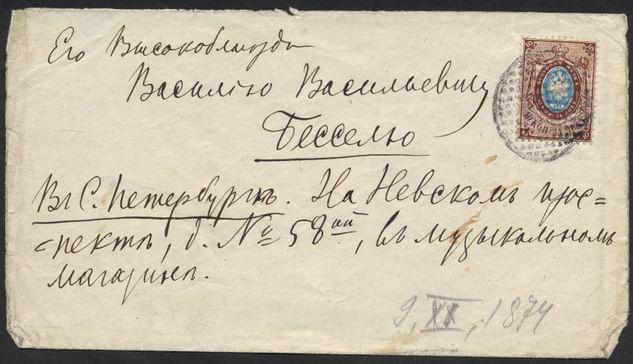 Его Высокоблагородію
Василію Васильевичу
Бесселю
Въ С. Петербургѣ. На Невскомъ прос=
=пектѣ, д. № 58ой, въ музыкальномъ
магазинѣ.
9, XI, 1874